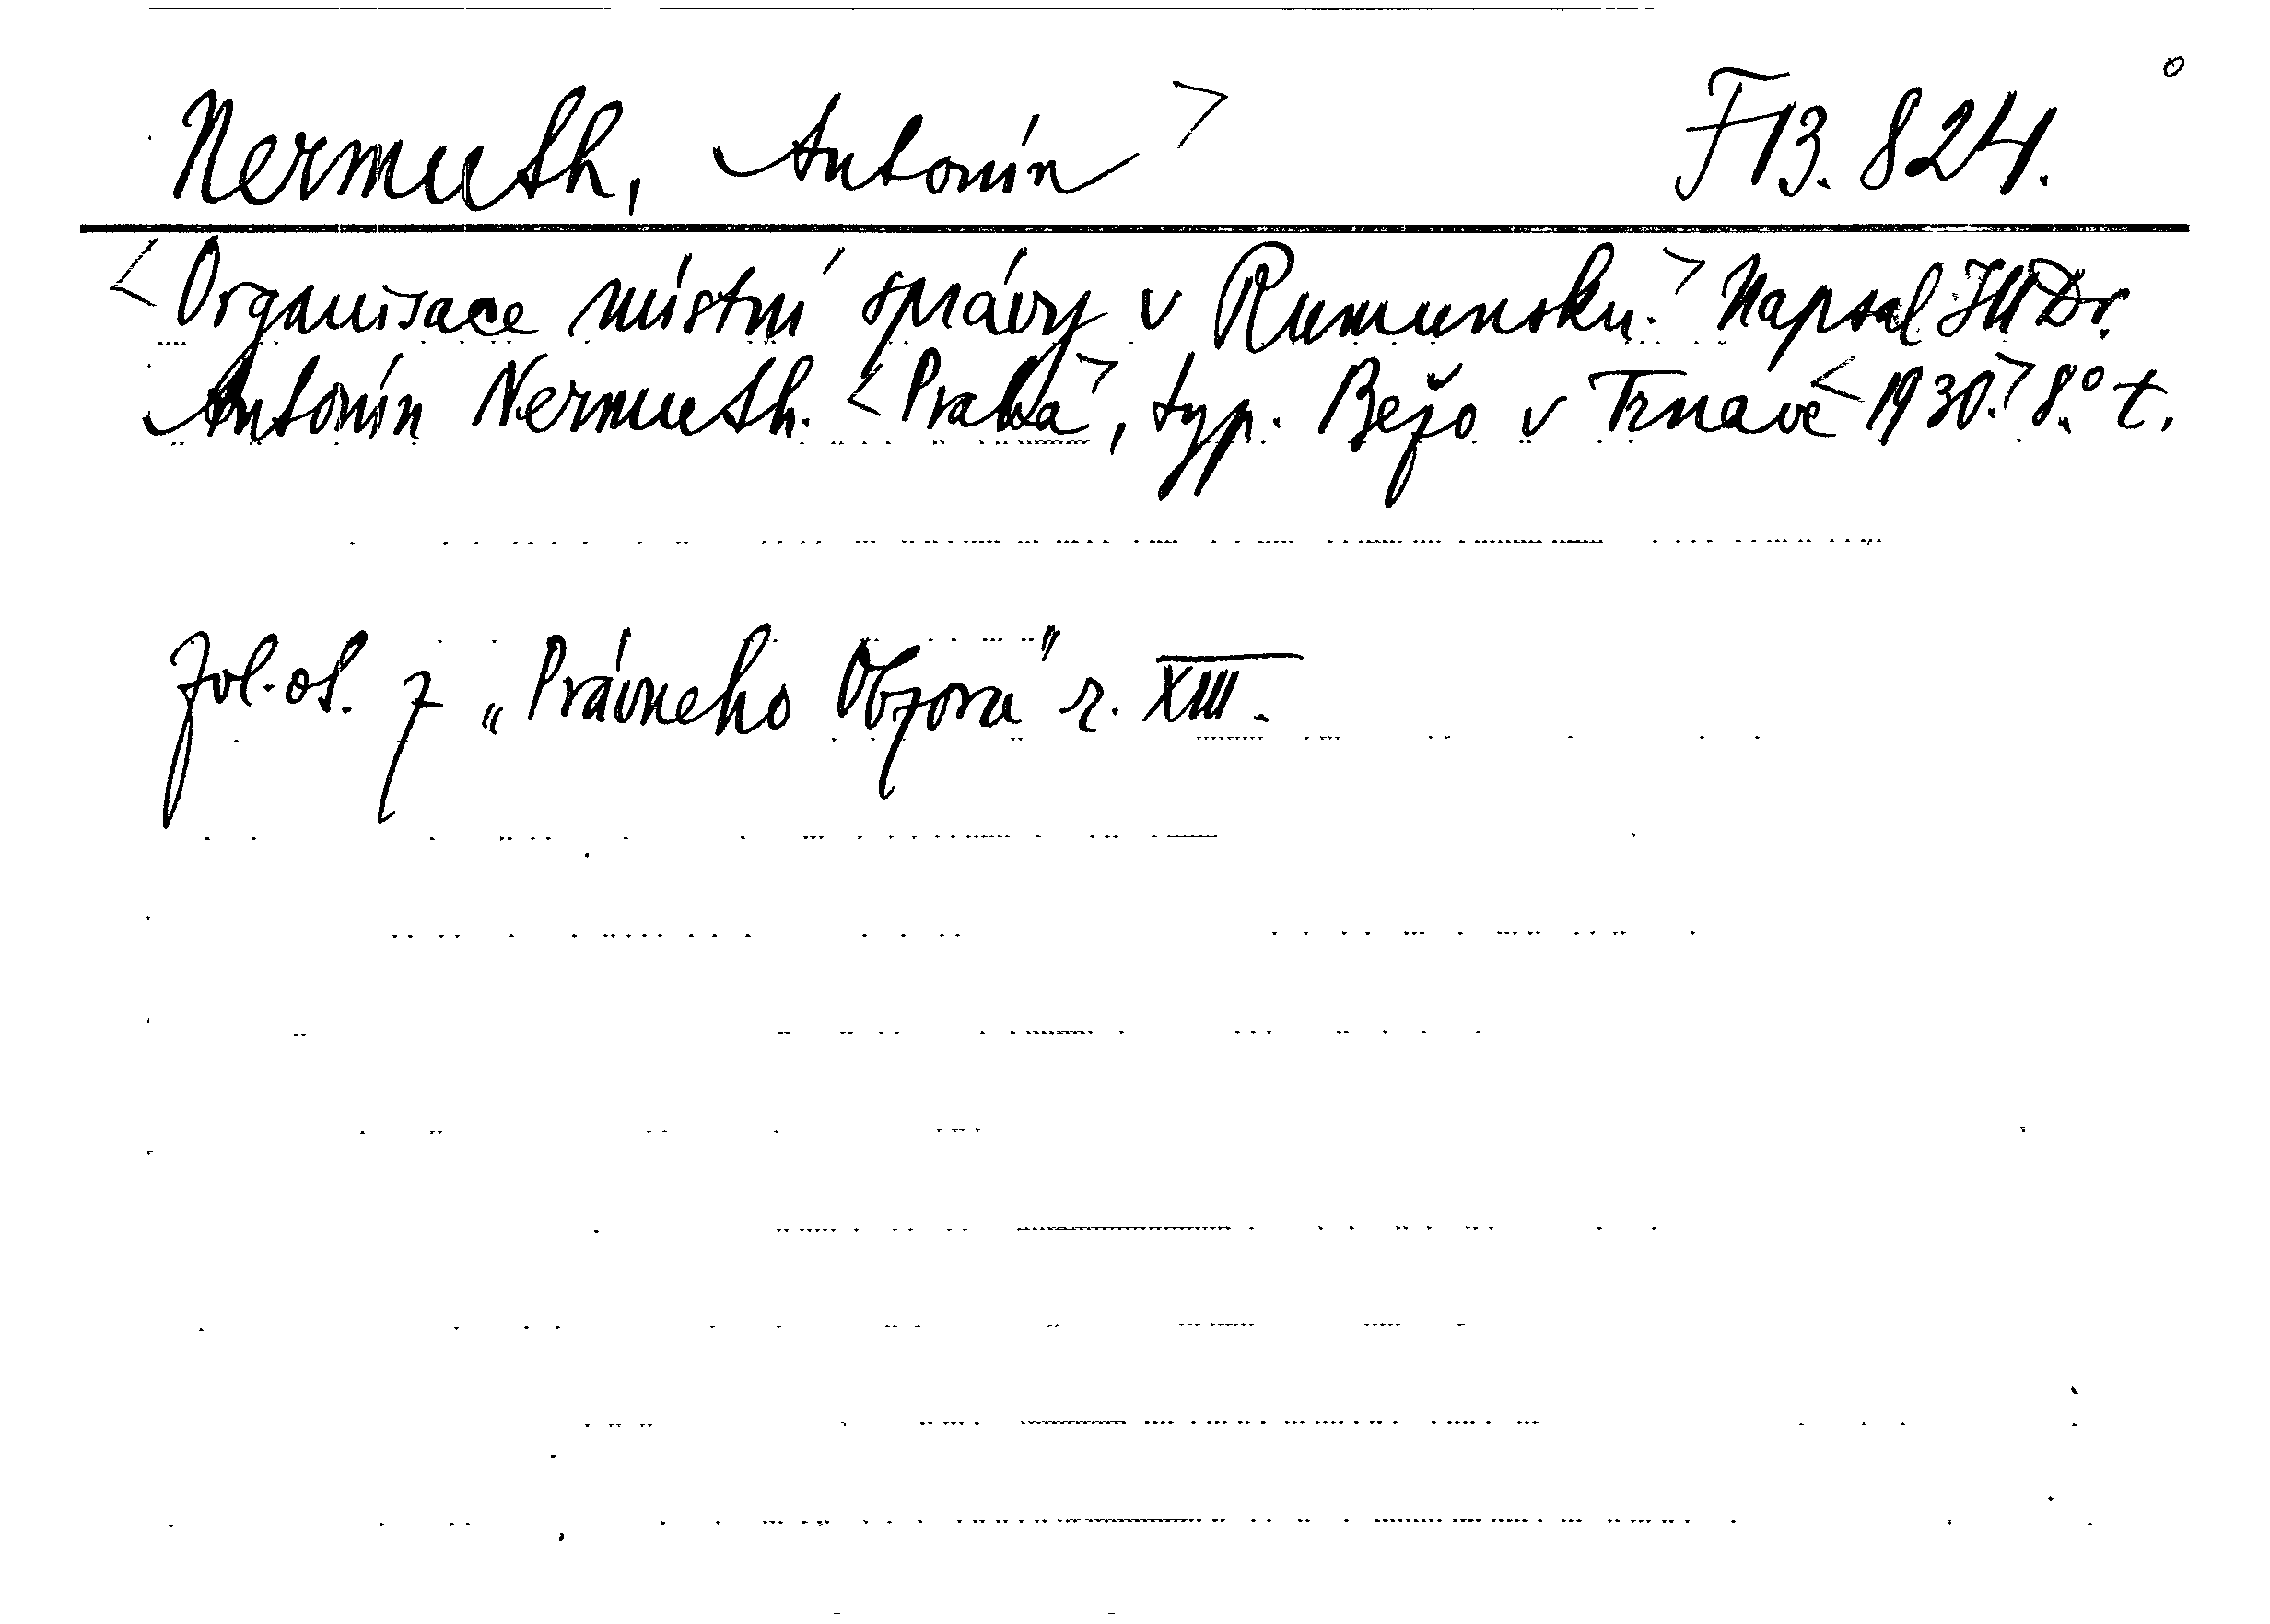 Nermuth, Antonín > F 13.824.
<Organisace místní správy v Rumunsku.> Napsal JUDr.
Antonín Nermuth. <Praha>, typ. Bežo v Trnavě <1930.> 8.° t.
Zvl. ot. z „Právneho Obzoru" r. XIII.